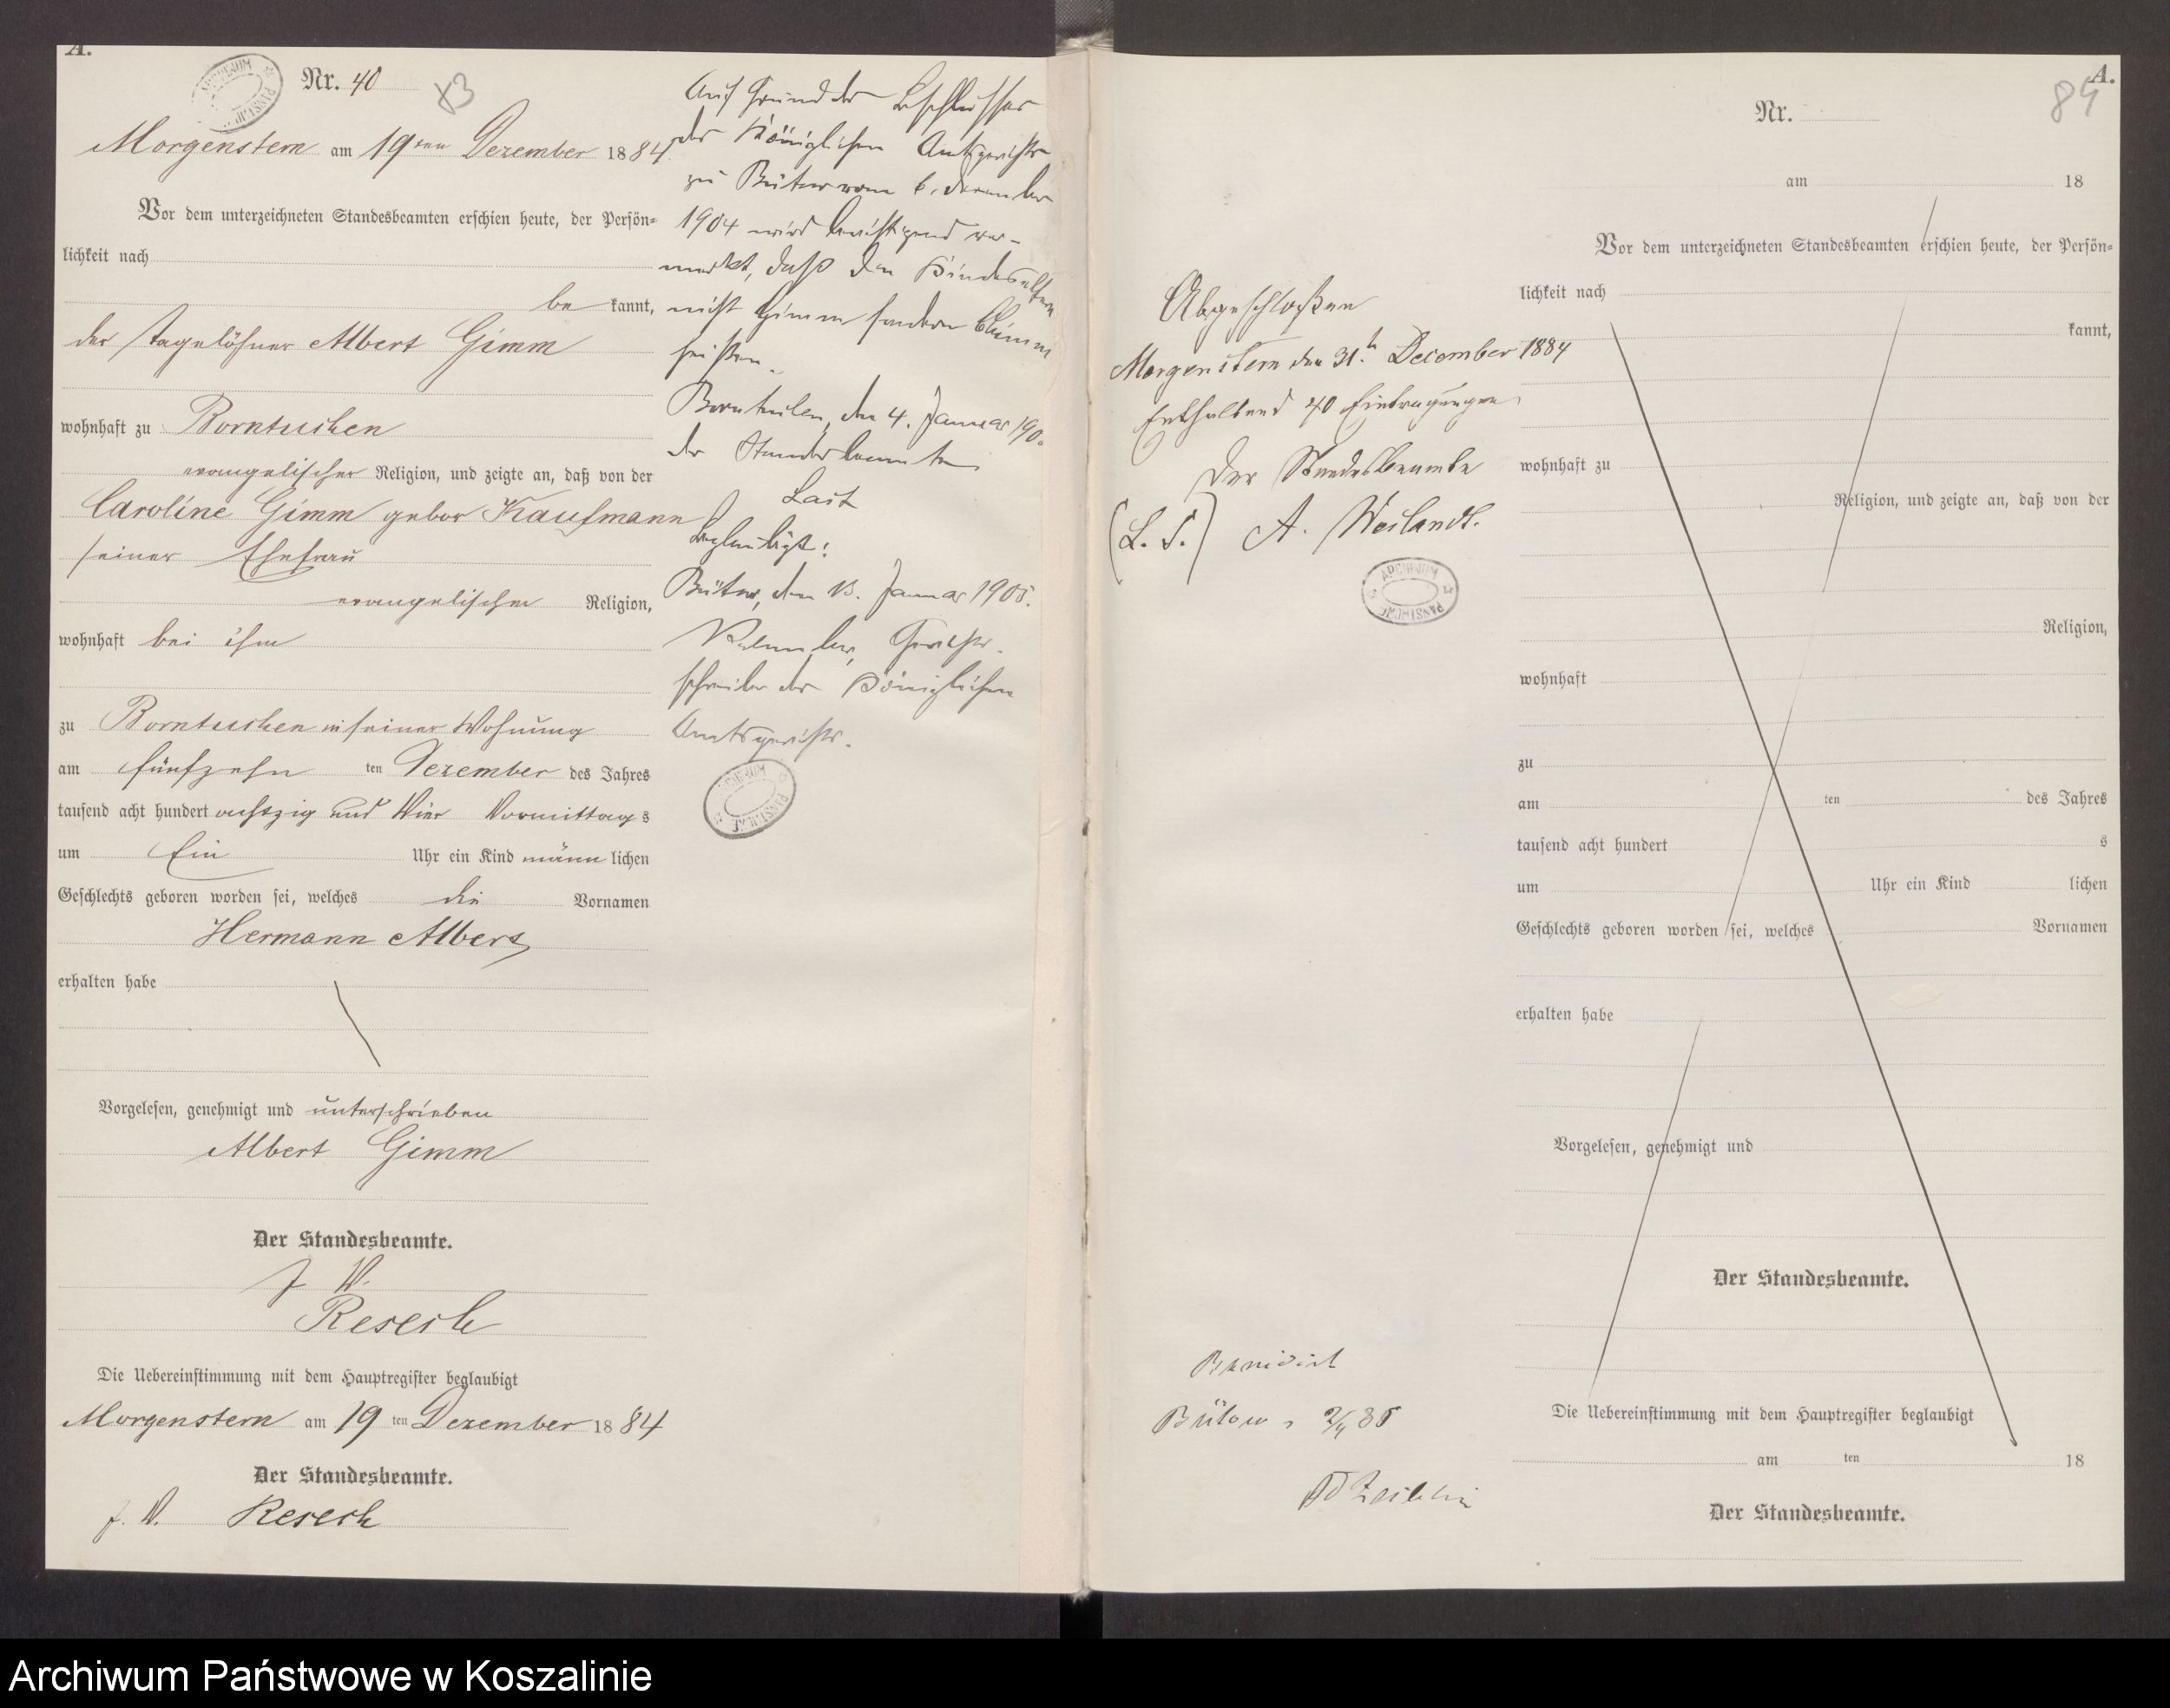 A.
Nr. 40
83
Morgenstern am 19ten Dezember 1884
Vor dem unterzeichneten Standesbeamten erschien heute, der Persön-
lichkeit nach
be kannt,
der Tagelöhner Albert Gimm
wohnhaft zu Borntuchen
evangelischer Religion, und zeigte an, daß von der
Caroline Gimm gebor Kaufmann
seiner Ehefrau
evangelischer Religion,
wohnhaft bei ihm
zu Borntuchen in seiner Wohnung
am fünfzehn ten Dezember des Jahres
tausend acht hundert achtzig und Vier Vormittags
um Ein Uhr ein Kind männlichen
Geschlechts geboren worden sei, welches die Vornamen
Hermann Albert
erhalten habe
Vorgelesen, genehmigt und unterschrieben
Albert Gimm
Der Standesbeamte.
J. V.
Reseck
Die Uebereinstimmung mit dem Hauptregister beglaubigt
Morgenstern am 19 ten Dezember 1884
Der Standesbeamte.
J. V. Reseck
Auf Grund des Beschlusses
des Königlichen Amtsgerichts
zu Bütow vom 6. Dezember
1904 wird berichtigend ver-
merkt, daß die Kindeseltern
nicht Gimm sondern
heißen.
Borntuchen, den 4. Januar 190
der Standesbeamte
Beglaubigt:
Bütow, den 13. Januar 1905.
Gerichts-
schreiber des Königlichen
Amtsgerichts.
Abgeschloßen
Morgenstern den 31.t December 1884
Enthaltend 40 Eintragungen
Der Standesbeamte
(L. S.) A. Weilandt.
ARCHIWUM
PAŃSTWOWE
Bütow,
A.
84
Nr.
am 18
Vor dem unterzeichneten Standesbeamten erschien heute, der Persön-
lichkeit nach
kannt,
wohnhaft zu
Religion, und zeigte an, daß von der
Religion,
wohnhaft
zu
am ten des Jahres
tausend acht hundert s
um Uhr ein Kind lichen
Geschlechts geboren worden sei, welches Vornamen
erhalten habe
Vorgelesen, genehmigt und
Der Standesbeamte.
Die Uebereinstimmung mit dem Hauptregister beglaubigt
am ten 18
Der Standesbeamte.
Archiwum Państwowe w Koszalinie